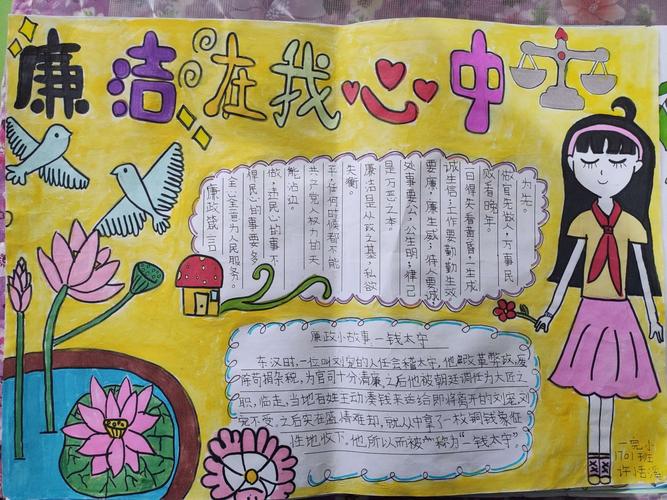 廉洁在我心中
廉政箴言
全心全意为人民服务。
得民心的事要多
做；违民心的事不
能沾边。
共产党人权力的天
平，任何时候都不能
失衡。
廉洁是从政之基，私欲
是万恶之本。
处事要公，公生明；律己
要廉，廉生威；待人要诚，
诚生信；工作要勤，勤生效
一日得失看黄昏，一生成
败看晚年。
做官先做人，万事民
为先。
廉政小故事—一钱太守
东汉时，一位叫刘宠的人任会稽太守，他改革弊政，废
除苛捐杂税，为官司十分清廉。之后他被朝廷调任为大匠之
职，临走，当地百姓主动凑钱来送给即将离开的刘宠，刘
宠不受。之后实在盛情难却，就从中拿了一枚铜钱象征
性地收下。他所以而被称为"一钱太守"。
一完小
1701班
许